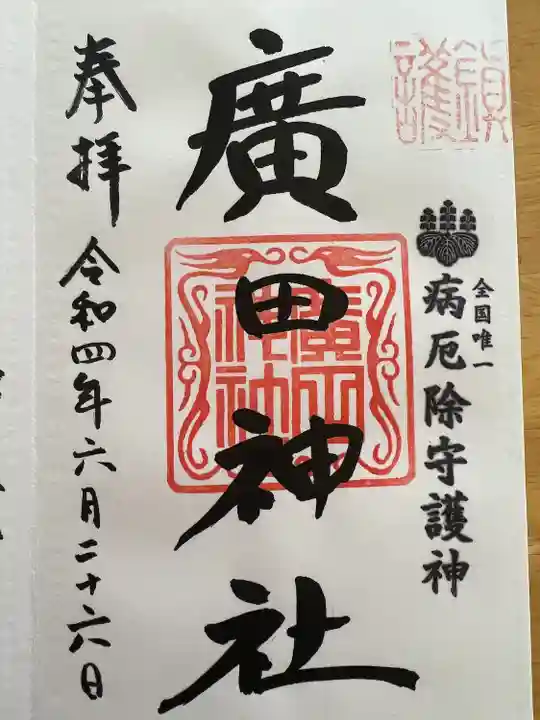 鎮護
全国唯一
病厄除守護神
廣田神社
廣田神社
奉拝
令和四年六月二十六日